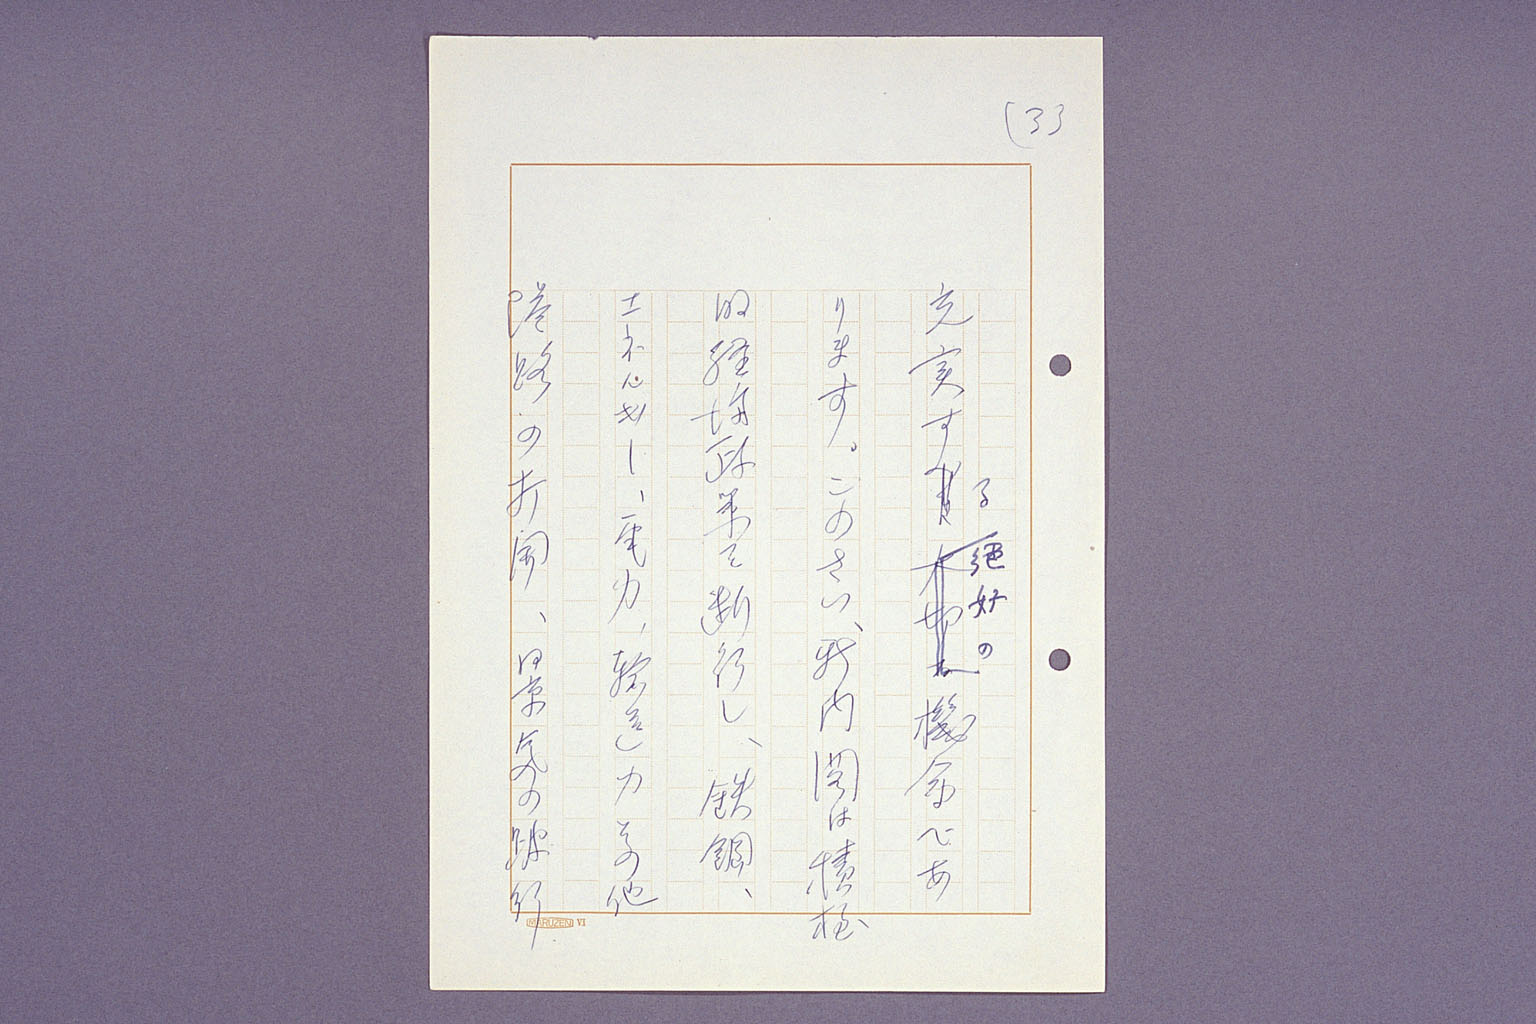 (3)
る絶好の
充実す大切な機会であ
ります。このさい、新内閣は積極
的経済政策を断行し、鉄鋼、
エネルギー、電力、輸送力その他
隘路の打開、景気の跛行
MARUZEN VI